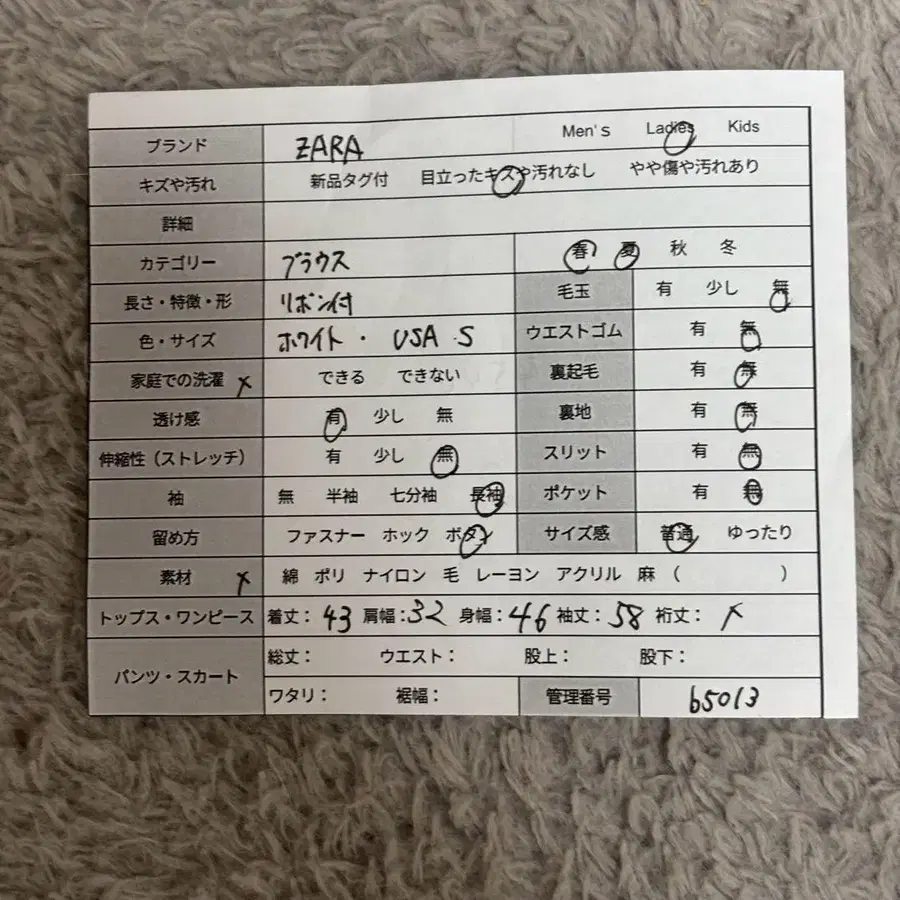 ブランド ZARA Men's Ladies Kids
キズや汚れ 新品タグ付 目立ったキズや汚れなし やや傷や汚れあり
詳細
カテゴリー ブラウス 春 夏 秋 冬
長さ・特徴・形 リボン付 毛玉 有 少し 無
色・サイズ ホワイト・ USA S ウエストゴム 有 無
家庭での洗濯 × できる できない 裏起毛 有 無
透け感 有 少し 無 裏地 有 無
伸縮性（ストレッチ） 有 少し 無 スリット 有 無
袖 無 半袖 七分袖 長袖 ポケット 有 無
留め方 ファスナー ホック ボタン サイズ感 普通 ゆったり
素材 × 綿 ポリ ナイロン 毛 レーヨン アクリル 麻 （ ）
トップス・ワンピース 着丈：43 肩幅：32 身幅：46 袖丈：58 裄丈：×
パンツ・スカート 総丈： ウエスト： 股上： 股下：
ワタリ： 裾幅： 管理番号 65013